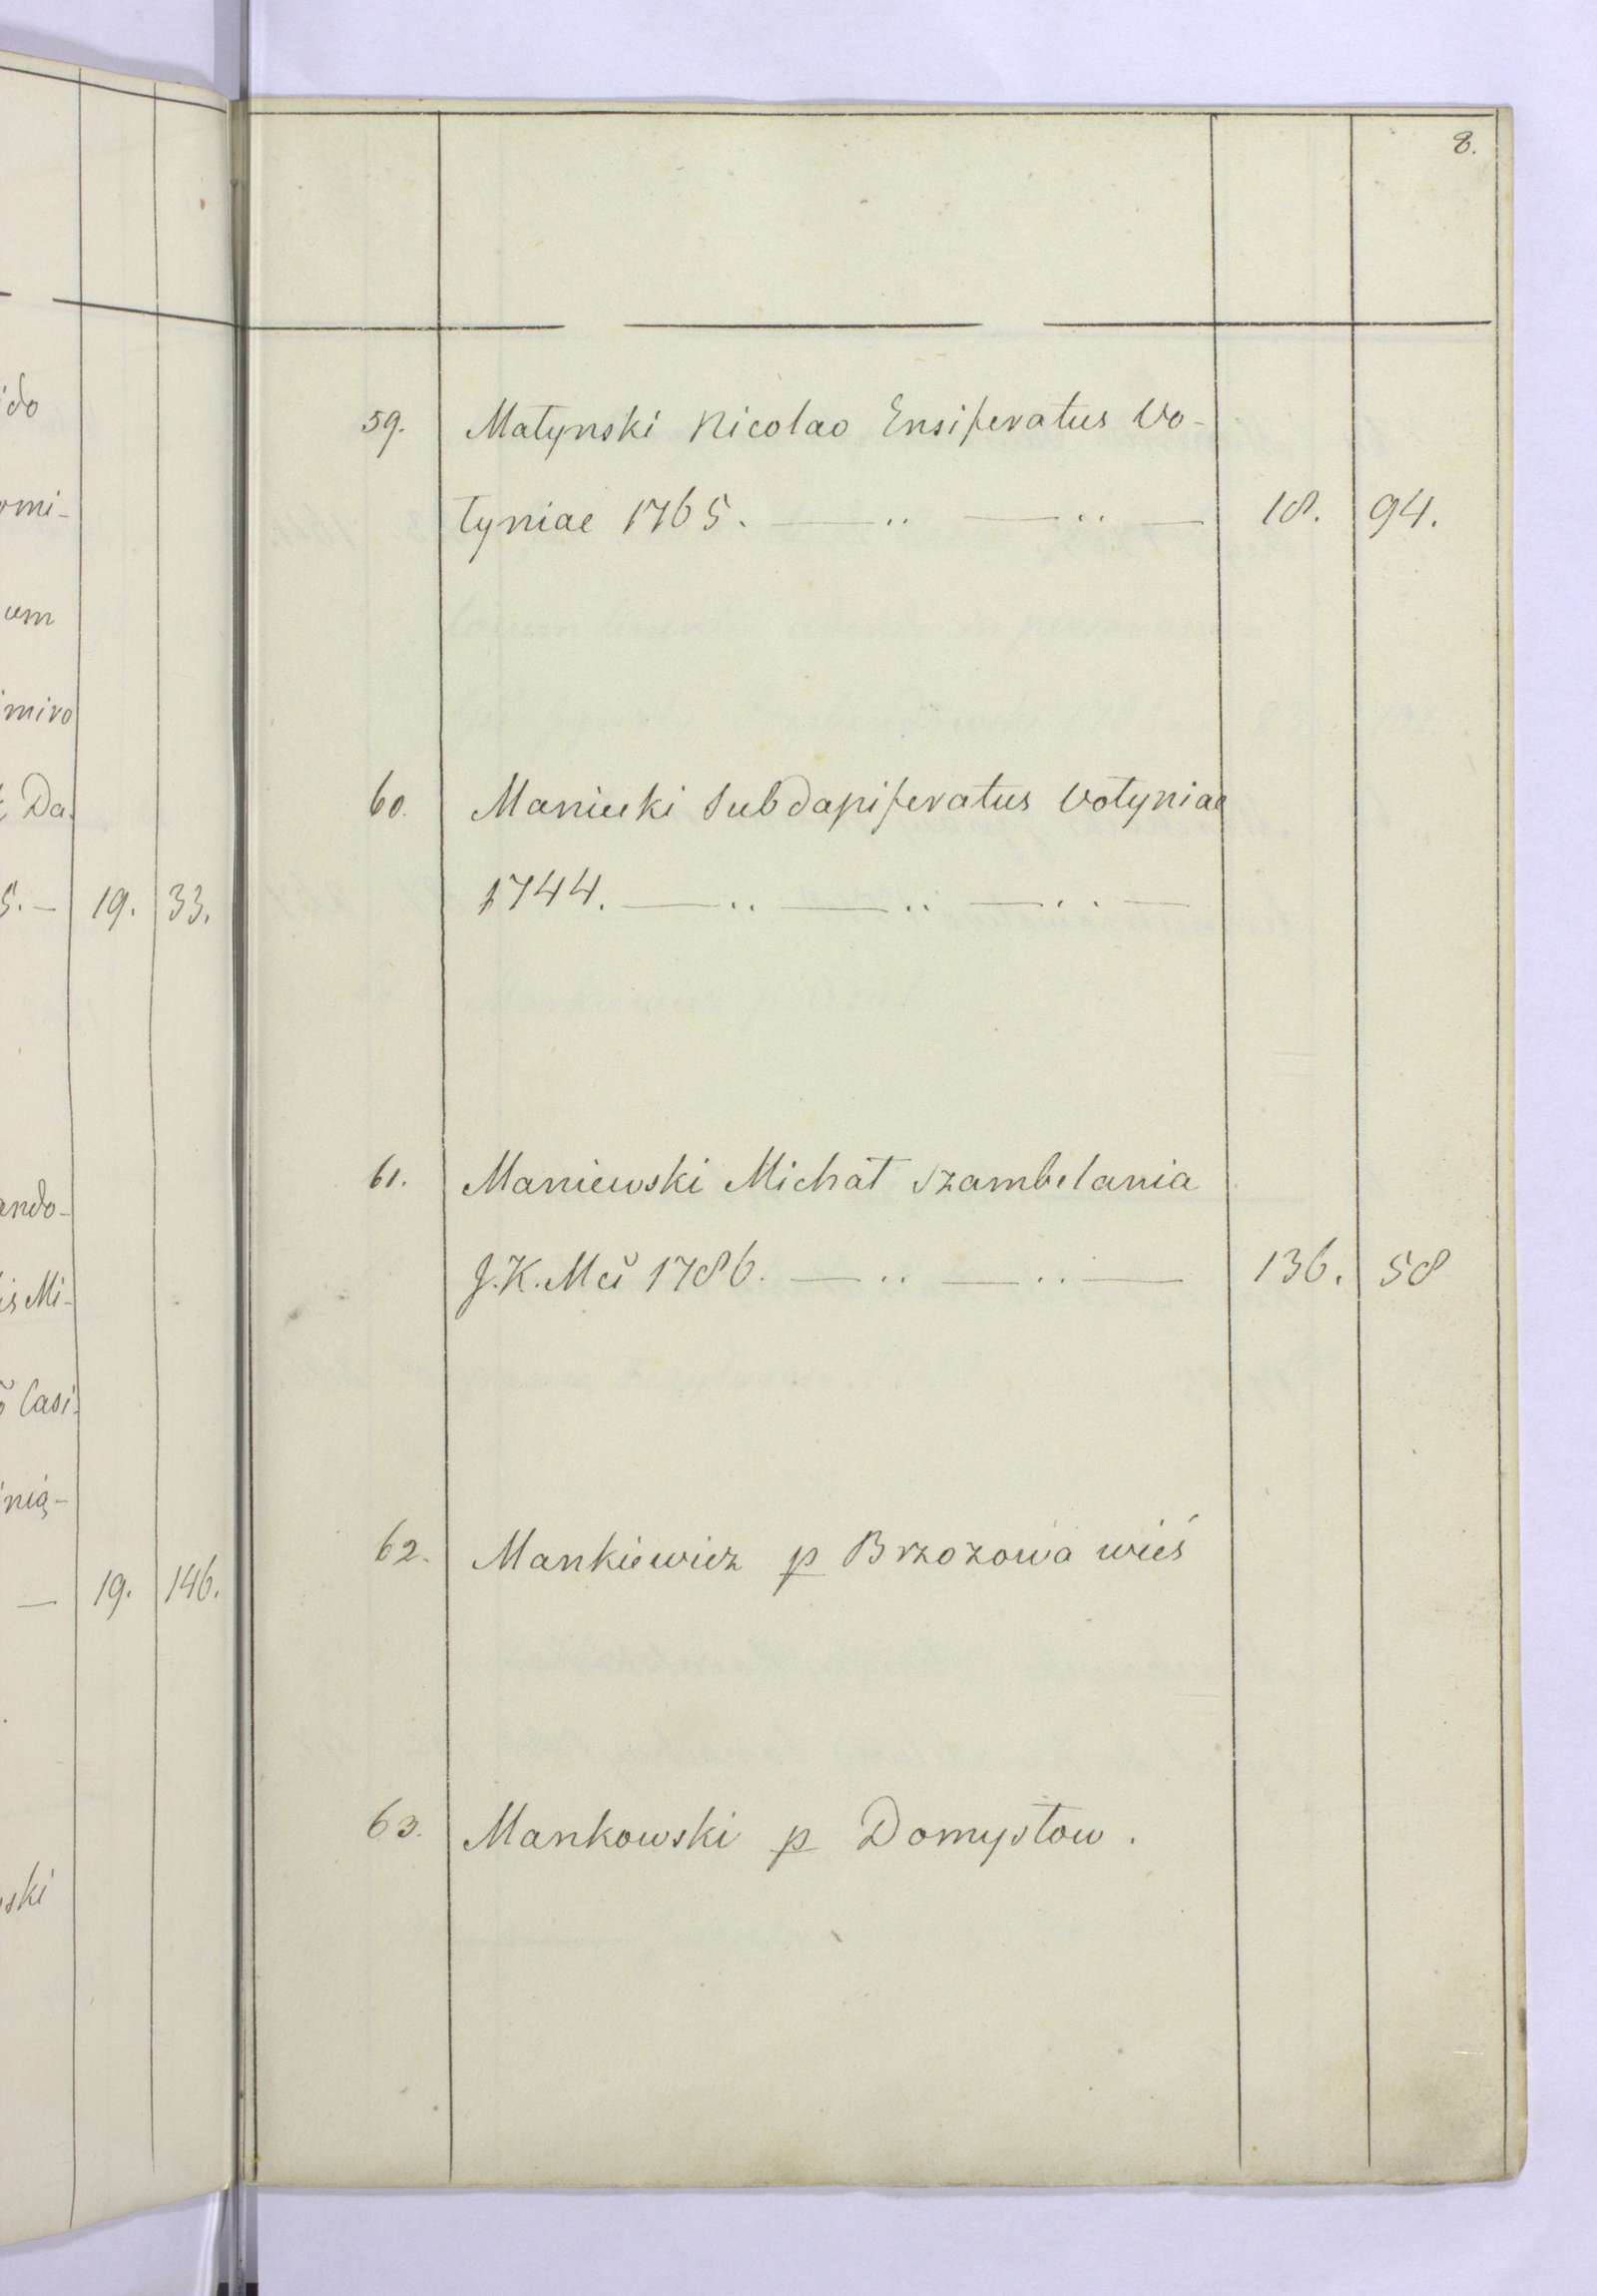 ido
omi-
um
imiro
Da.
5. — 19. 33.
ando-
is Mi-
Casi-
nią-
— 19. 146.
ski
8.
59. Małynski Nicolao Ensiferatus Vo-
łyniae 1765. — .. — .. — 18. 94.
60. Maniecki Subdapiferatus Vołyniae
1744. — .. — .. — .. —
61. Maniewski Michał Szambelania
J. K. Mci 1786. — .. — .. — 136. 58
62. Mankiewicz p Brzozowa wieś
63. Mankowski p Domysłow.